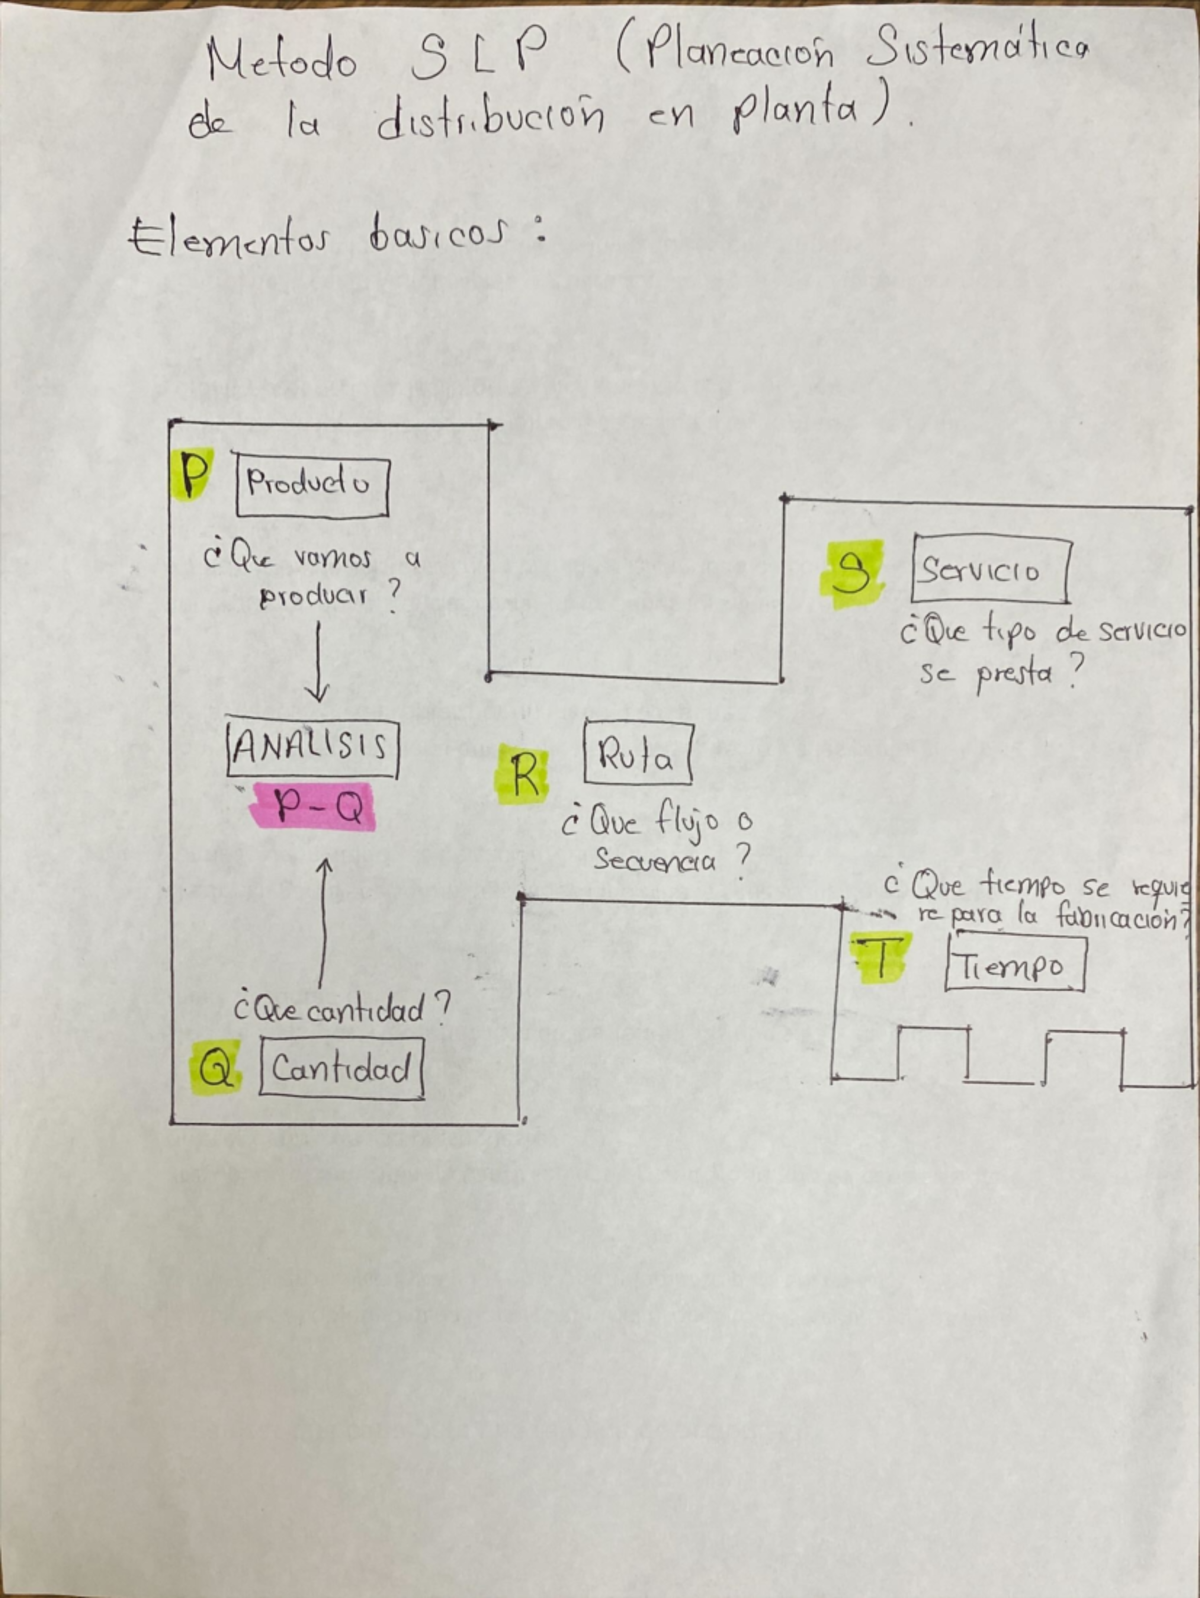 Metodo SLP (Planeación Sistemática
de la distribución en planta).
Elementos basicos:
P Producto
¿Que vamos a
producir?
ANALISIS
P-Q
¿Que cantidad?
Q Cantidad
R Ruta
¿Que flujo o
Secuencia?
S Servicio
¿Que tipo de servicio
se presta?
¿Que tiempo se requie
re para la fabricación?
T Tiempo